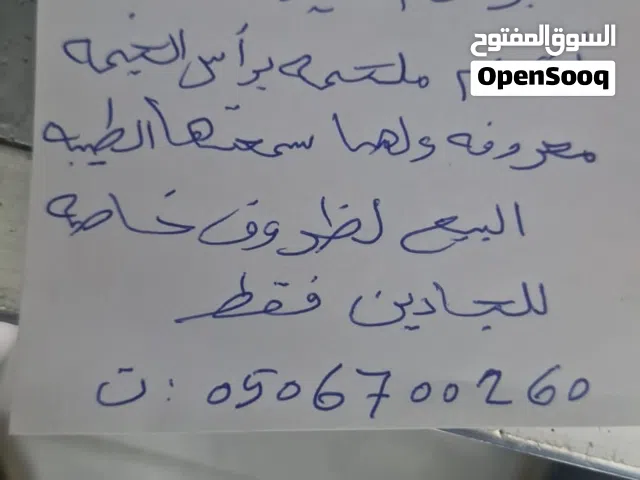 السوق المفتوح
OpenSooq
ملحمه برأس الخيمه
معروفه ولها سمعتها الطيبه
البيع لظروف خاصه
للجادين فقط
ت: 0506700260